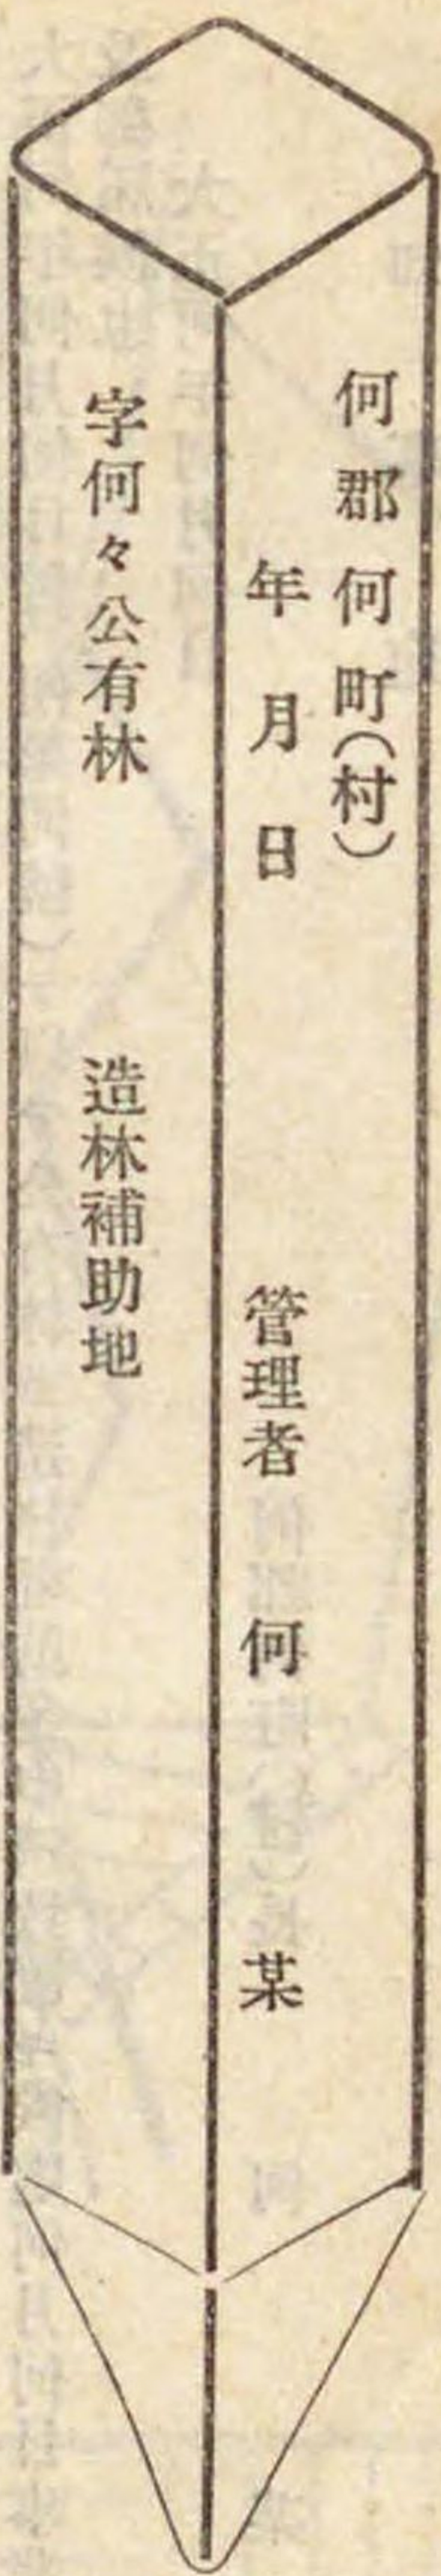 何郡何町(村)
年月日
管理者 何 某
字何々公有林 造林補助地